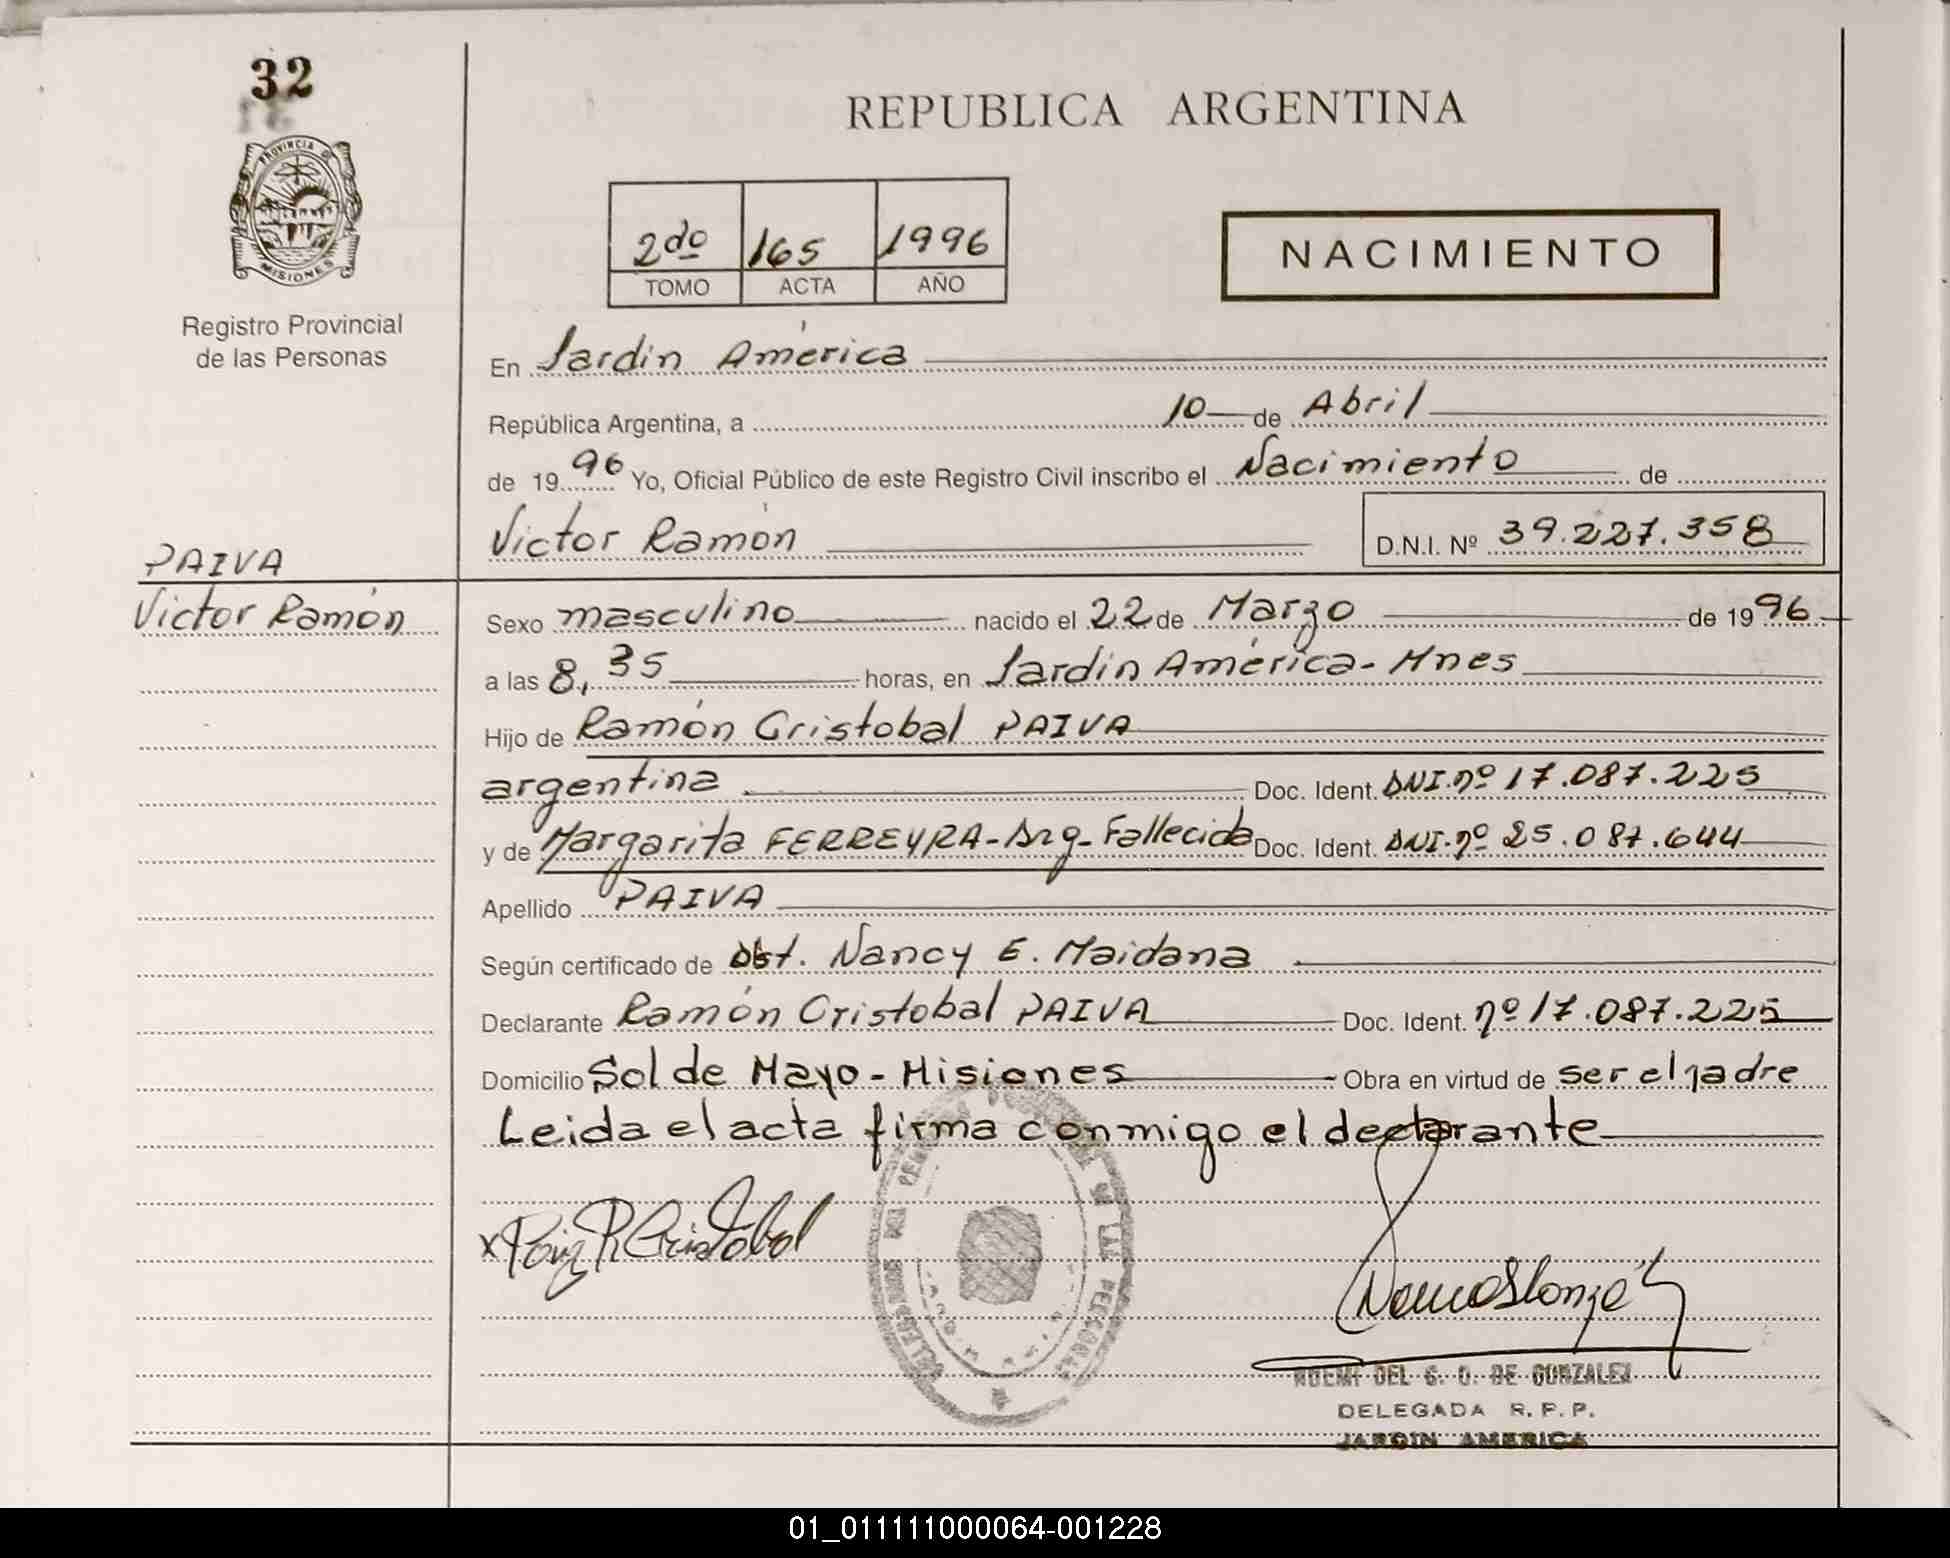 32
PROVINCIA DE
MISIONES
Registro Provincial
de las Personas
REPUBLICA ARGENTINA
2do 165 1996
TOMO ACTA AÑO
NACIMIENTO
En Jardín América
República Argentina, a 10 de Abril
de 1996 Yo, Oficial Público de este Registro Civil inscribo el Nacimiento de
Victor Ramón D.N.I. Nº 39.227.358
PAIVA
Victor Ramón
Sexo masculino nacido el 22 de Marzo de 1996
a las 8,35 horas, en Jardín América - Mnes
Hijo de Ramón Cristobal PAIVA
argentina Doc. Ident. DNI.nº 17.087.225
y de Margarita FERREYRA - Arg - Fallecida Doc. Ident. DNI.nº 25.087.644
Apellido PAIVA
Según certificado de Obst. Nancy E. Maidana
Declarante Ramón Cristobal PAIVA Doc. Ident. nº 17.087.225
Domicilio Sol de Mayo - Misiones Obra en virtud de ser el padre
Leida el acta firma conmigo el declarante
x Paiva R Cristobal
NOEMI DEL G. O. DE GONZALEZ
DELEGADA R. P. P.
JARDIN AMERICA
01_011111000064-001228